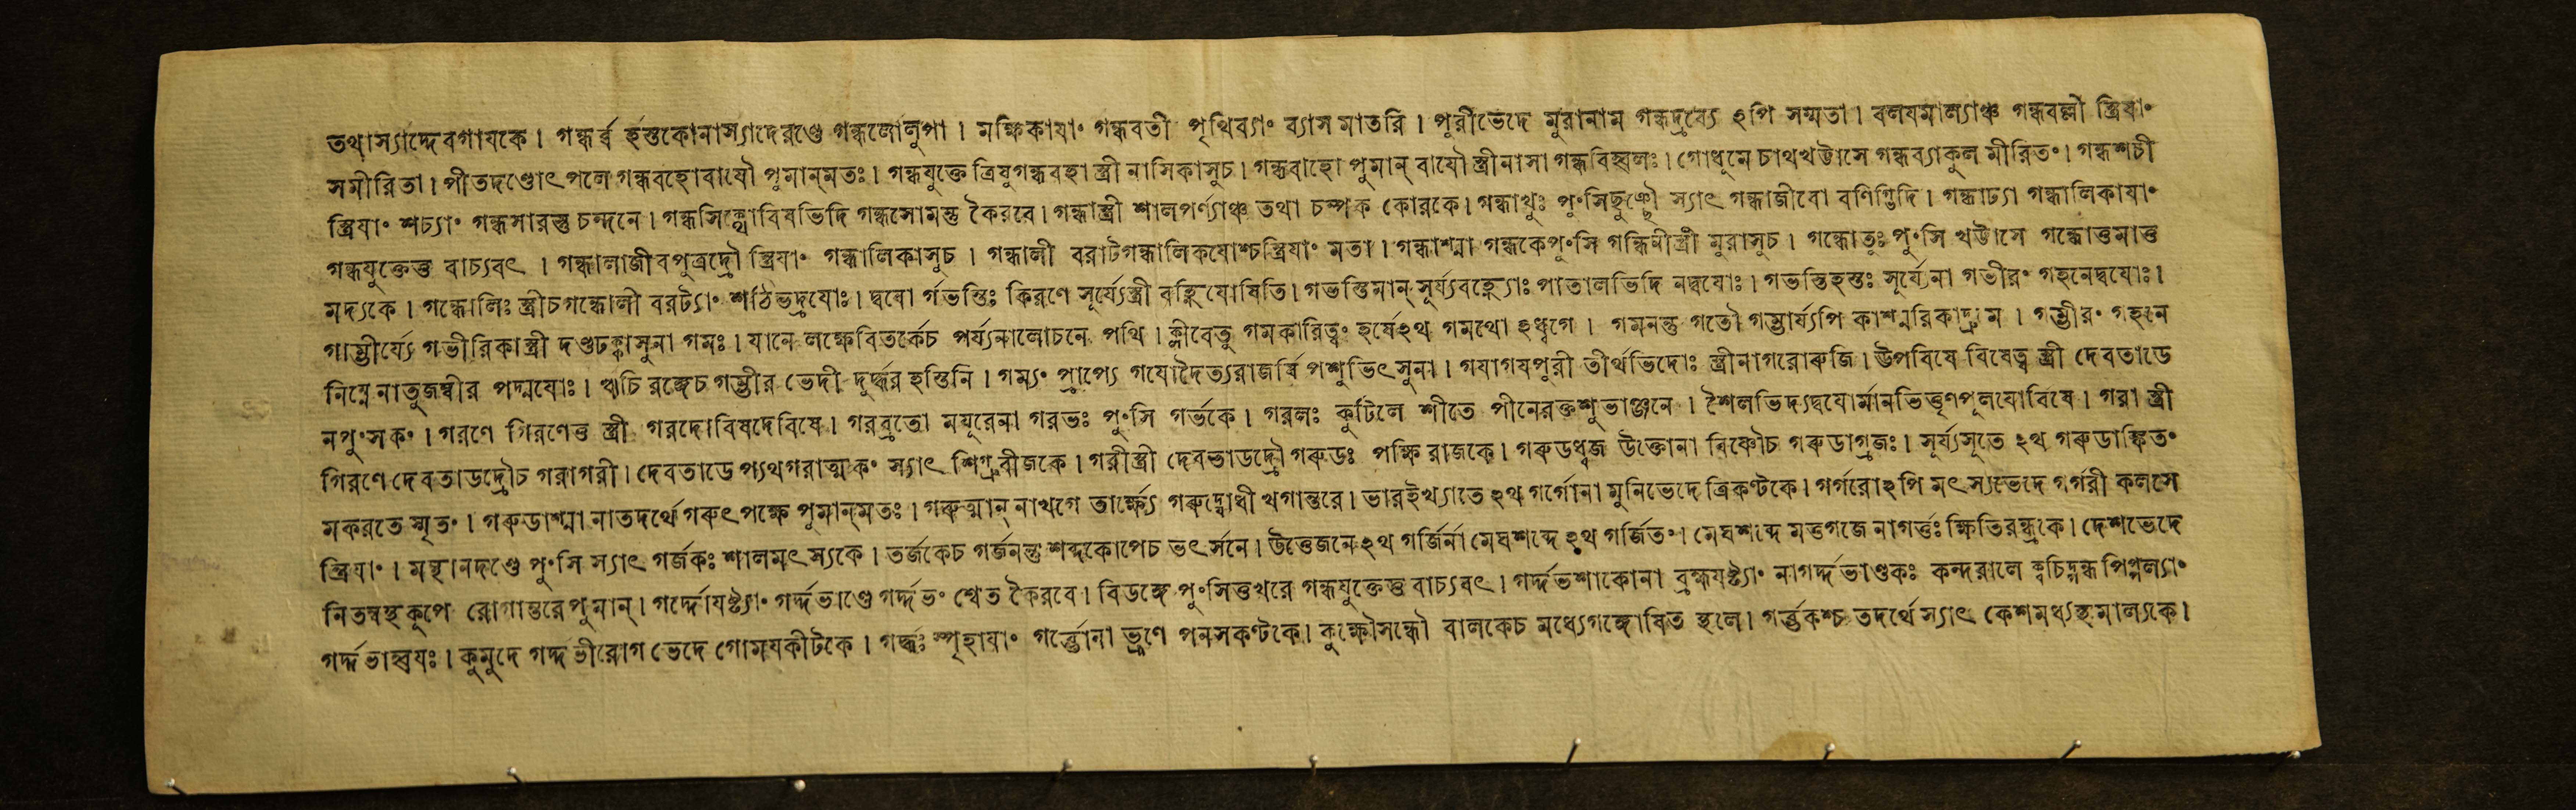 তথাস্যাদ্দেবগাযকে। গন্ধর্ব্ব হস্তকোনাস্যাদেরণ্ডে গন্ধলোলুপা। মক্ষিকাযা॰ গন্ধবতী পৃথিব্যা॰ ব্যাস মাতরি। পুরীভেদে মুরানাম গন্ধদ্রব্যে ঽপি সম্মতা। বলযমাল্যাঞ্চ গন্ধবল্লী স্ত্রিযা॰
সমীরিতা। পীতদণ্ডোৎপলে গন্ধবহোবাযৌ পুমান্মতঃ। গন্ধযুক্তে ত্রিষুগন্ধবহা স্ত্রী নাসিকাসুচ। গন্ধবাহো পুমান্ বাযৌ স্ত্রীনাসা গন্ধবিহ্বলঃ। গোধুমে চাথখট্টাসে গন্ধব্যাকুল মীরিত॰। গন্ধশচী
স্ত্রিযা॰ শচ্যা॰ গন্ধসারস্তু চন্দনে। গন্ধসিন্ধোবিষভিদি গন্ধসোমস্তু কৈরবে। গন্ধাস্ত্রী শালপর্ণ্যাঞ্চ তথা চম্পক কোরকে। গন্ধাখুঃ পু॰সিছুঞ্ছৌ স্যাৎ গন্ধাজীবো বণিগ্ভিদি। গন্ধাঢ্যা গন্ধালিকাযা॰
গন্ধযুক্তেত্তু বাচ্যবৎ। গন্ধালাজীবপুত্রদ্রৌ স্ত্রিযা॰ গন্ধালিকাসুচ। গন্ধালী বরাটগন্ধালিকযোশ্চস্ত্রিযা॰ মতা। গন্ধাশ্মা গন্ধকেপু॰সি গন্ধিনীস্ত্রী মুরাসুচ। গন্ধোতুঃ পু॰সি খট্টাসে গন্ধোত্তমাত্ত
মদ্যকে। গন্ধোলিঃ স্ত্রীচগন্ধোলী বরট্যা॰ শঠিভদ্রযোঃ। দ্বযো র্গভস্তিঃ কিরণে সূর্য্যেস্ত্রী বহ্নিযোষিতি। গভস্তিমান্ সূর্য্যবহ্ন্যোঃ পাতালভিদি নদ্বযোঃ। গভস্তিহস্তঃ সূর্য্যেনা গভীর॰ গহনেদ্বযোঃ।
গাম্ভীর্য্যে গভীরিকাস্ত্রী দণ্ডঢক্কাসুনা গমঃ। যানে লক্ষেবিতর্কেচ পর্য্যনালোচনে পথি। ক্লীবেতু গমকারিত্বং হর্ষেঽথ গমথো ঽধ্বগে। গমনন্তু গতৌ গম্ভার্য্যপি কাশ্মরিকাদ্রুম। গম্ভীর॰ গহনে
নিম্নেনাতুজম্বীর পদ্মযোঃ। ঋচি রঙ্গেচ গম্ভীর ভেদী দুর্দ্ধর হস্তিনি। গম্য॰ প্রাপ্যে গযোদৈত্যরাজর্ষি পশুভিৎসুনা। গযাগযপুরী তীর্থভিদোঃ স্ত্রীনাগরোরুজি। উপবিষে বিষেত্ব স্ত্রী দেবতাডে
নপু॰সক॰। গরণে গিরণেত্ত স্ত্রী গরদোবিষদেবিষে। গরব্রতো মযূরেনা গরভঃ পু॰সি গর্ভকে। গরলঃ কুটিলে শীতে পীনেরক্তশুভাঞ্জনে। শৈলভিদ্যদ্বযোর্মানভিত্তৃণপূলযোর্বিষে। গরা স্ত্রী
গিরণে দেবতাডদ্রৌচ গরাগরী। দেবতাডে প্যথগরাত্মক॰ স্যাৎ শিগ্রুবীজকে। গরীস্ত্রী দেবতাডদ্রৌ গরুডঃ পক্ষি রাজকে। গরুডধ্বজ উক্তোনা বিষ্ণৌচ গরুডাগ্রজঃ। সূর্য্যসূতে ঽথ গরুডাঙ্কিত॰
মকরতে স্মৃত॰। গরুডাশ্মা নাতদর্থে গরুৎপক্ষে পুমান্মতঃ। গরুত্মান্ নাখগে তার্ক্ষ্যে গরুদ্যোধী খগান্তরে। ভারইখ্যাতে ঽথ গর্গোনা মুনিভেদে ত্রিকণ্টকে। গর্গরোঽপি মৎস্যভেদে গর্গরী কলসে
স্ত্রিযা॰। মন্থানদণ্ডে পু॰সি স্যাৎ গর্জকঃ শালমৎস্যকে। তর্জকেচ গর্জনন্তু শব্দকোপেচ ভৎর্সনে। উত্তেজনেঽথ গর্জির্না মেঘশব্দে ঽথ গর্জিত॰। মেঘশব্দে মত্তগজে নাগর্ত্তঃ ক্ষিতিরন্ধ্রকে। দেশভেদে
নিতম্বস্থ কূপে রোগান্তরে পুমান্। গর্দ্দোযষ্ট্যা॰ গর্দ্দভাণ্ডে গর্দ্দভ॰ শ্বেত কৈরবে। বিডঙ্গে পু॰সিত্তখরে গন্ধযুক্তেত্ত বাচ্যবৎ। গর্দ্দভশাকোনা ব্রহ্মযষ্ট্যা॰ নাগর্দ্দভাণ্ডকঃ কন্দরালে ক্বচিদ্গন্ধ পিপ্পল্যা॰
গর্দ্দভাহ্বযঃ। কুমুদে গর্দ্দভীরোগ ভেদে গোমযকীটকে। গর্দ্ধঃ স্পৃহাযা॰ গর্ব্ভোনা ভ্রূণে পনসকণ্টকে। কুক্ষৌসন্ধৌ বালকেচ মধ্যেগঙ্গোষিত স্থলে। গর্ব্ভকশ্চ তদর্থে স্যাৎ কেশমধ্যস্থমাল্যকে।